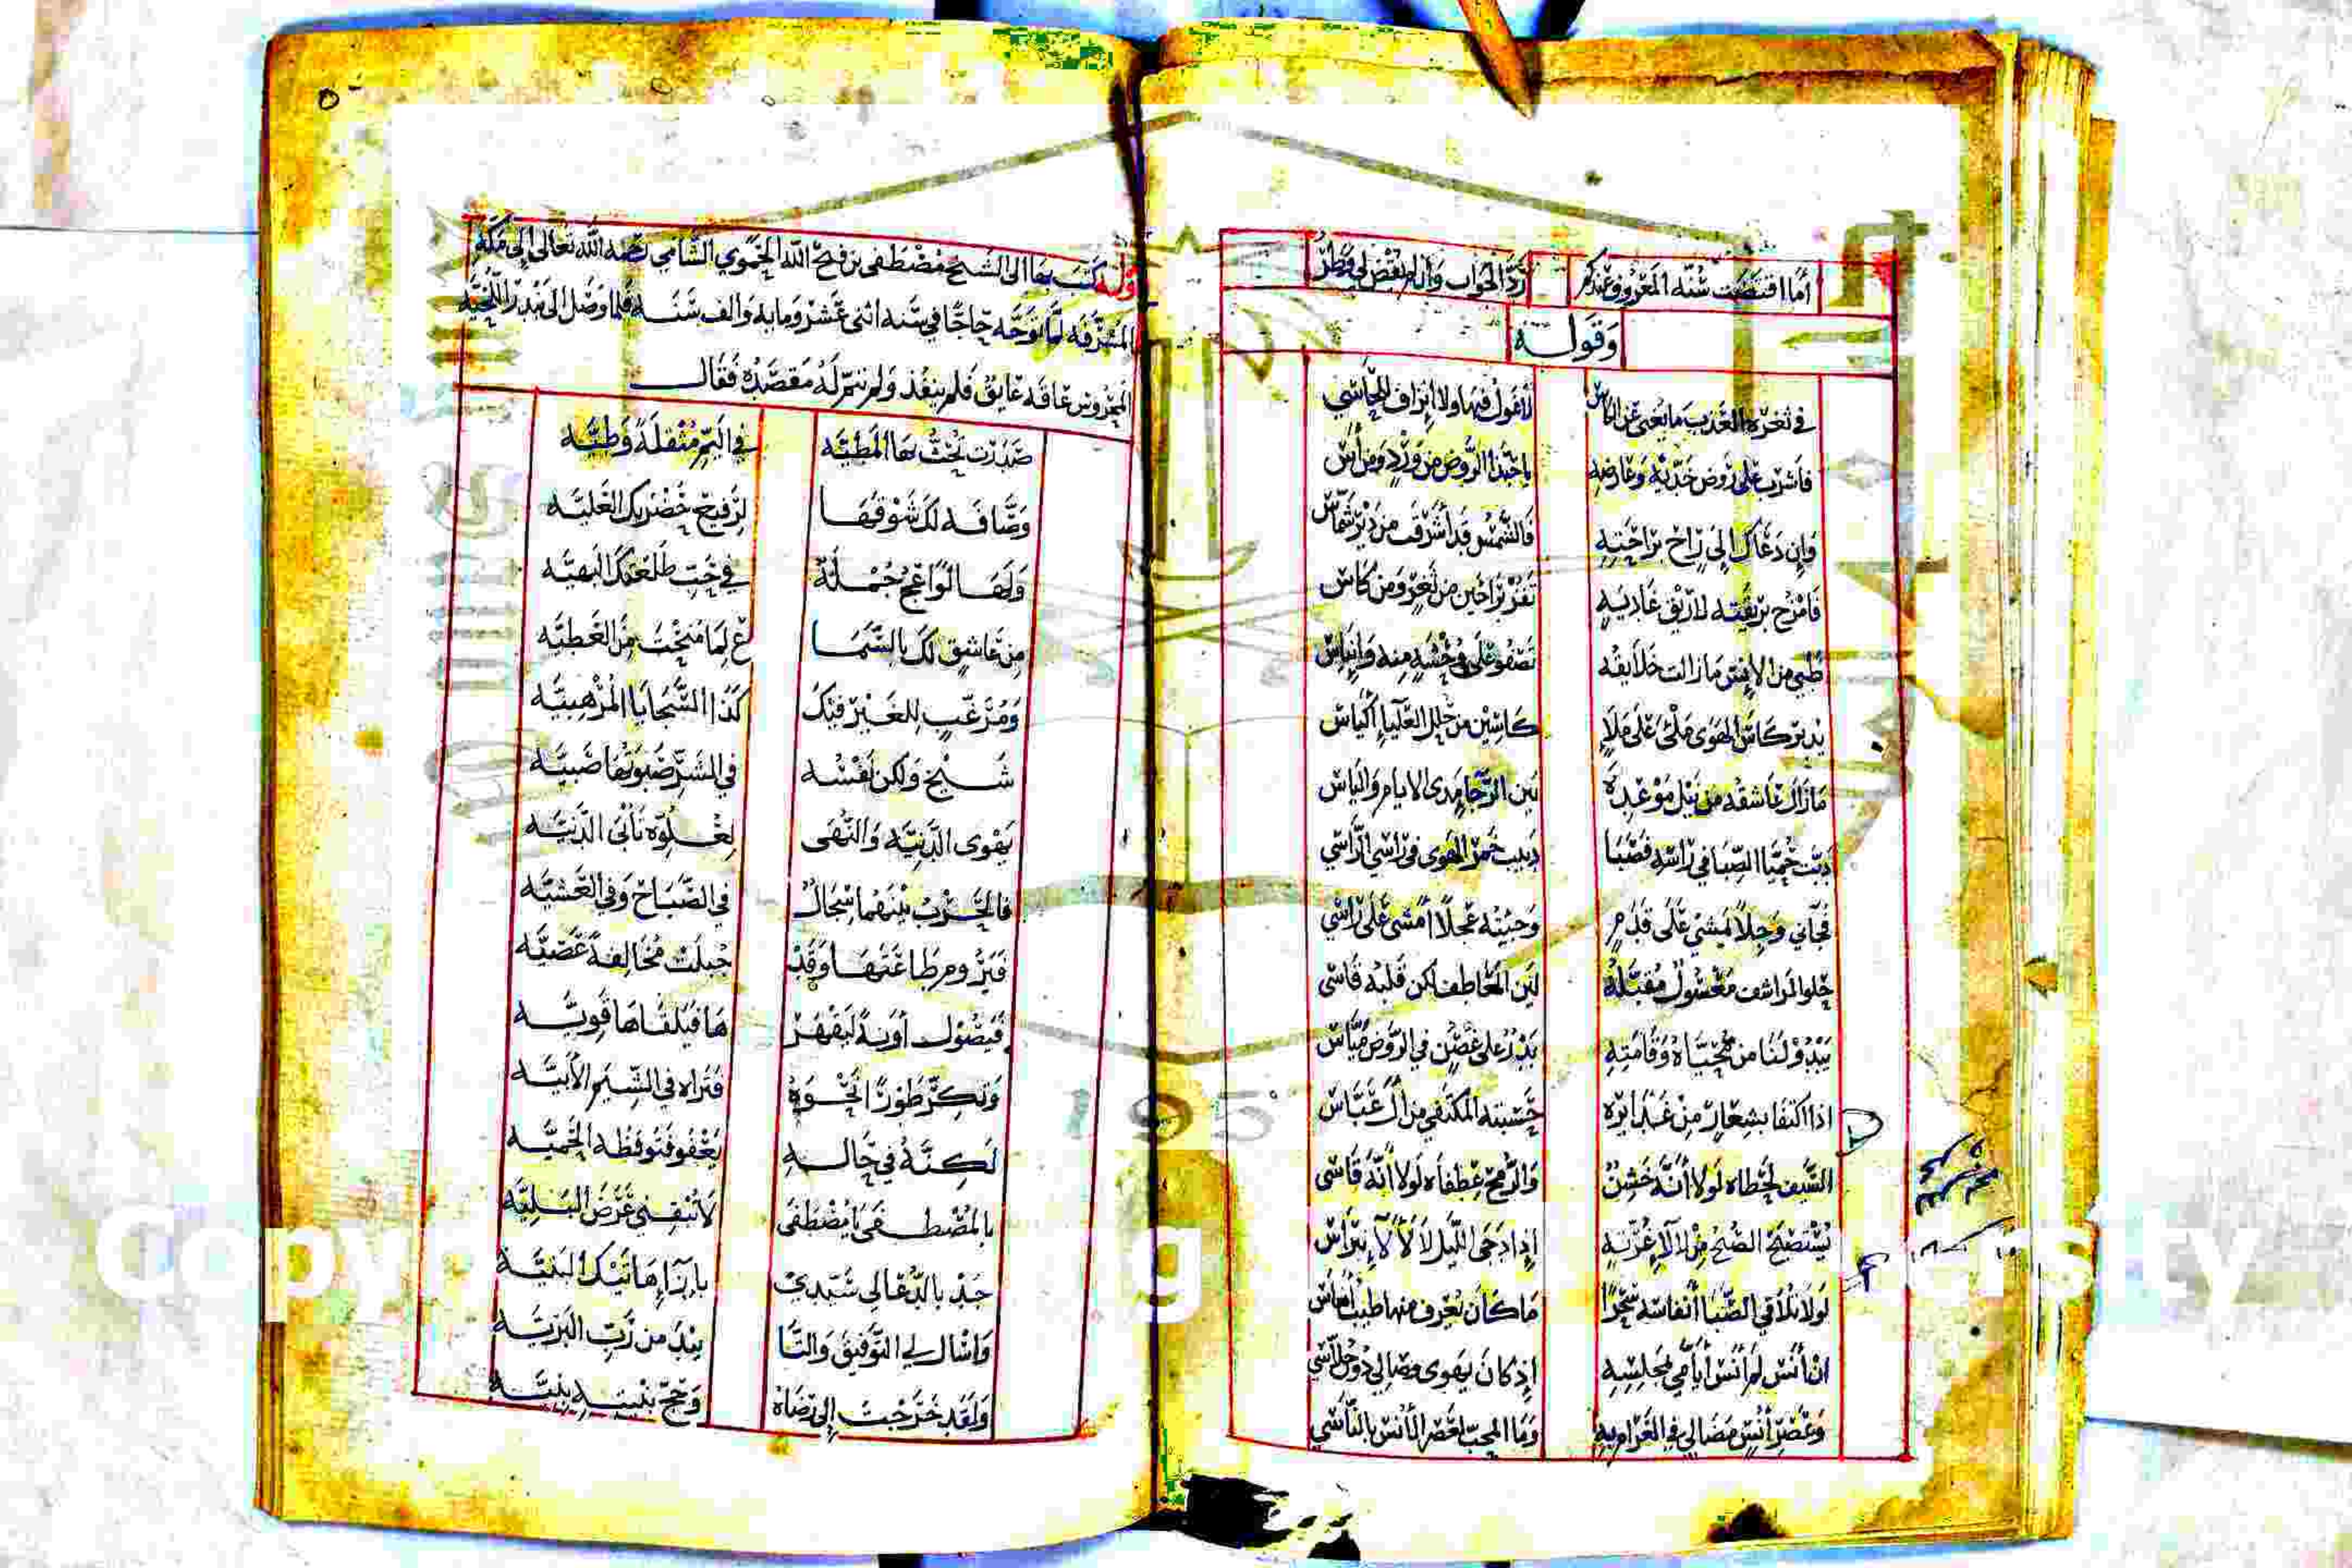 أما اقتضت سنه المعروف عندكم رد الجواب وان لم تقض لي وطر
وقوله
في ثغره العذب ما يغني عن الكاس لا غول فيها ولا انزاف للحاسي
فاشرب على روض خديه وعارضه يا حبذا الروض من ورد ومن آس
وان دعاك الى راح براحته فالشمس قد أشرقت من دير شماس
فامزح بريقته لا ريق غاديه تفز براحين من ثغر ومن كاس
ظبي من الانس ما زالت خلايقه تصفو على وحشه منه وايناس
يدير كاس الهوى ملئ على ملا كاسين من حلل العليا اكياس
ما زال عاشقه من نيل موعده بين الرجا مدى الايام والياس
دبت حميا الصبا في راسه فصبا دبيب خمر الهوى في راسي الراسي
فجاني وجلا يمشي على قدم وجيته عجلا أمشي على راسي
حلو المراشف معسول مقبله لين المعاطف لكن قلبه قاسي
يبدو لنا من محياه وقامته بدر على غصن في الروض مياس
اذا اكتفا بشعار من غدايره حسبته المكتفي من آل عباس
السيف لحظاه لولا أنه خشن والرمح عطفاه لولا أنه قاسي
يستصبح الصبح من لالاء غرته إذا دجى الليل لا لألاء نبراس
لولا تلاقي الصبا أنفاسه سحرا ما كان يعرف منها طيب أنفاس
ان أنس لم أنس أيامي بمجلسه إذ كان يهوى وصالي دون جلاسي
وعصر أنس مضالي في الغرام به وما المحب لعصر الأنس بالناسي
وله كتب بها الى الشيخ مصطفى بن فتح الله الحموي الشامي رحمه الله تعالى إلى مكة
المشرفه لما توجه حاجا في سنه اثنى عشر ومايه والف سنه فلما وصل الى بندر اللحيه
المحروس عاقه عايق فلم ينفذ ولم يتم له مقصده فقال
صدرت تحث بها المطيه في البر مثقلة وطيه
وضافه لك شوقها لرفيع حضرتك العليه
ولها لواعج جملة في حب طلعتك البهيه
من عاشق لك بالسما ع لما منحت من العطيه
ومرغب للغير فيك كذا السجايا المرهبيه
شيخ ولكن نفسه في الشر صبوتها صبيه
يهوى الدنيه والنهى لعلوه تأبى الدنيه
فالحرب بينهما سجال في الصباح وفي العشيه
فيروم طاعتها وقد جبلت مخالفة عصيه
فيصول آونة ليقهر ها فيلقاها قويه
وتكر طورا نحوه فتراه في الشيم الأبيه
لكنه في حاله يغفو فتوقظه الحميه
بالمصطفى يا مصطفى لا تبقني غرض البليه
جد بالدعا لي سيدي بازا هاتيك البنيه
واسال لي التوفيق والتا ييد من رب البريه
ولقد خرجت إلى رضاه وحج بيته بنيه